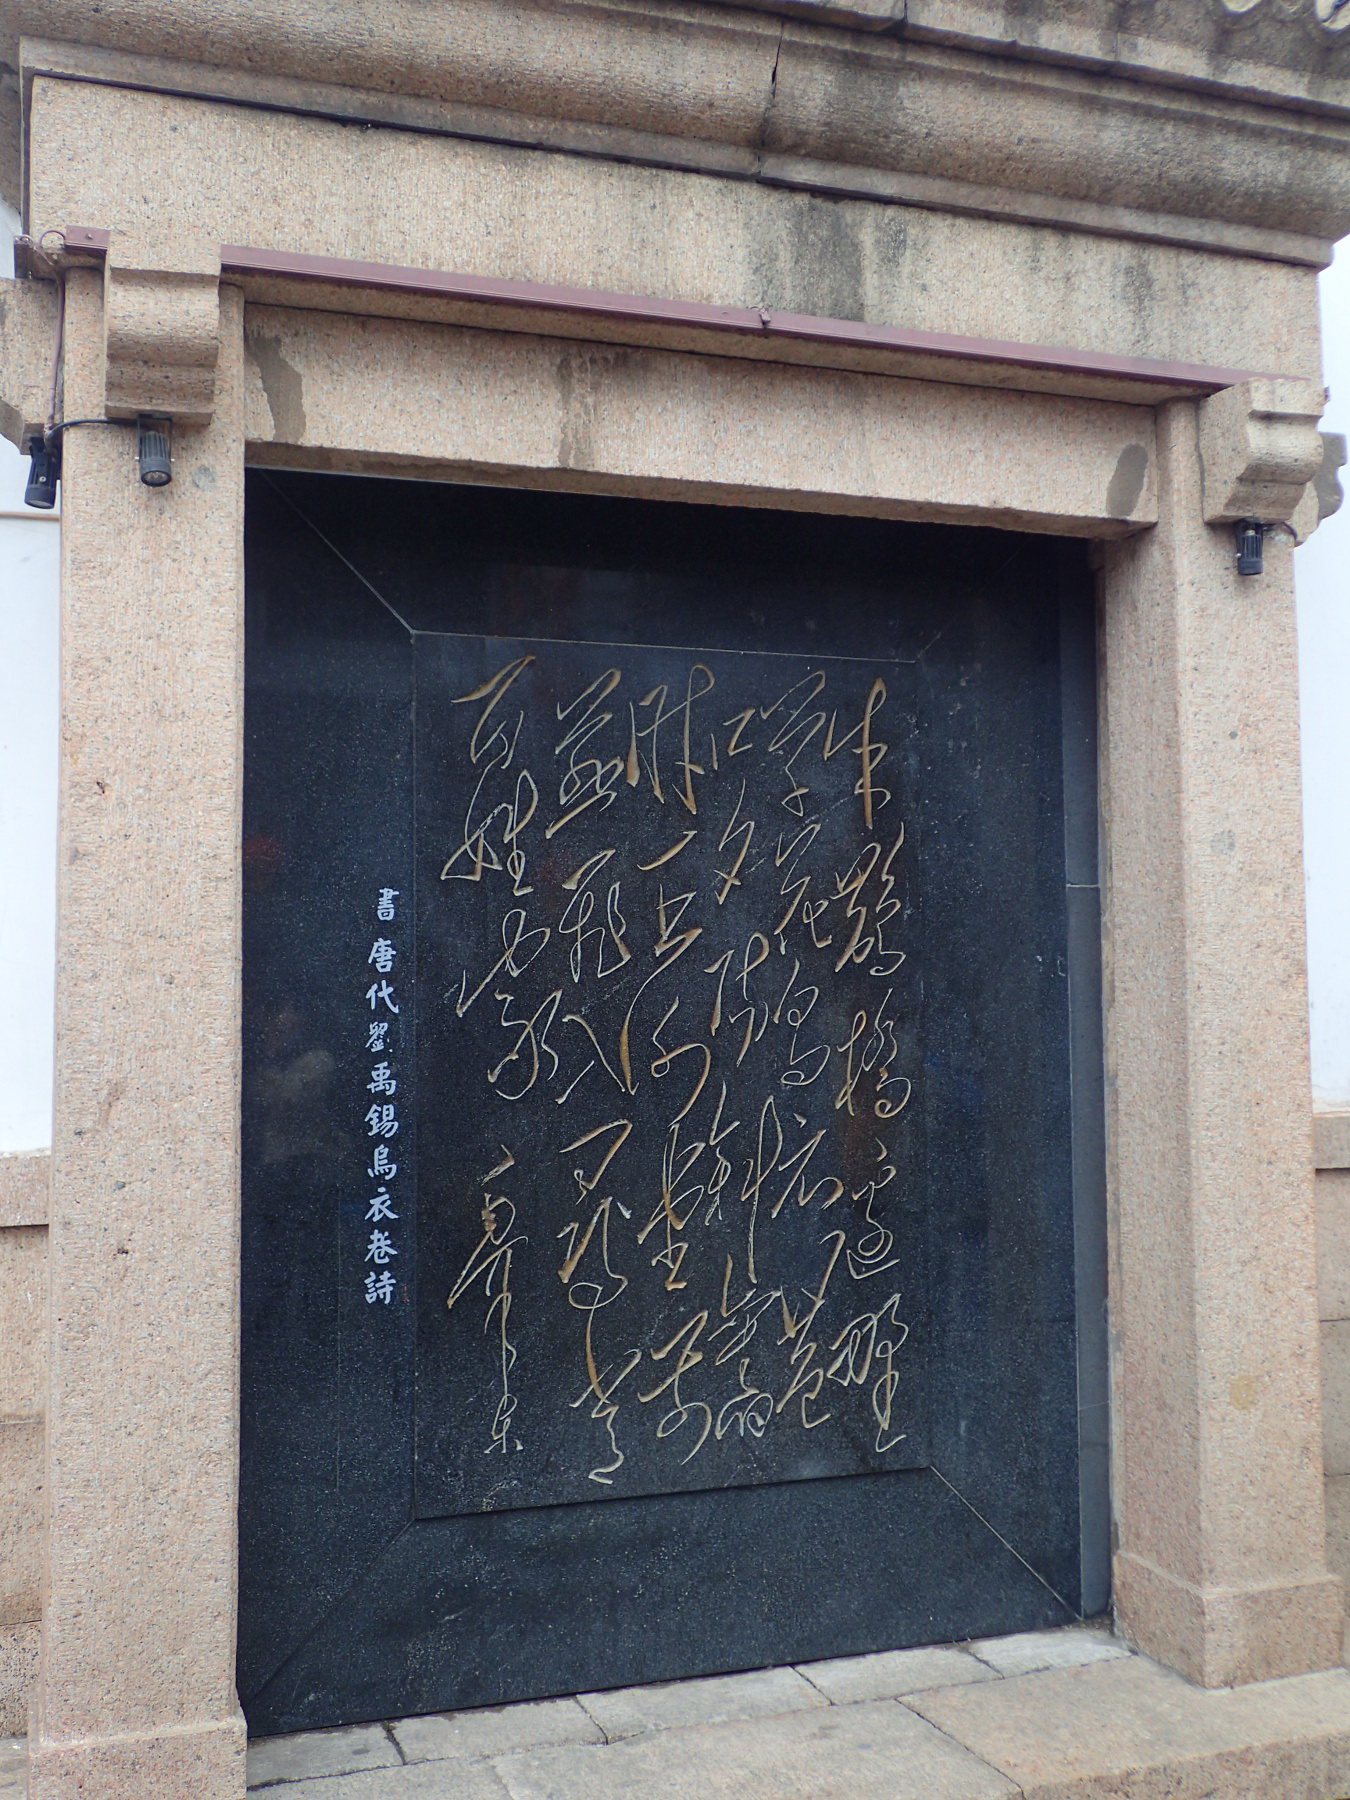 朱鵲橋邊野
草花烏衣巷
口夕陽斜舊
時王謝堂前
燕飛入尋常
百姓家
書唐代劉禹錫烏衣巷詩